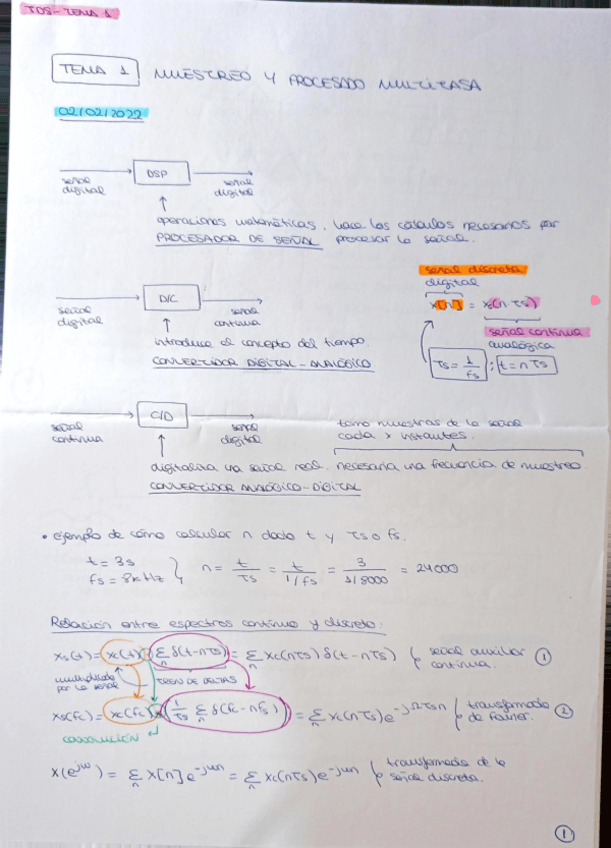 TDS - TEMA 1
TEMA 1 MUESTREO Y PROCESADO MULTITASA
02/02/2022
señal digital
DSP
señal digital
operaciones matemáticas, hace los cálculos necesarios par
PROCESADOR DE SEÑAL procesar la señal.
señal discreta
digital
señal digital
D/C
señal continua
x[n] = xc(n Ts)
señal continua
analógica
introduce el concepto del tiempo.
CONVERTIDOR DIGITAL - ANALÓGICO
Ts = 1/fs ; t = n Ts
señal continua
C/D
señal digital
tomo muestras de la señal
cada x instantes.
digitaliza una señal real. necesaria una frecuencia de muestreo
CONVERTIDOR ANALÓGICO - DIGITAL
• ejemplo de cómo calcular n dado t y Ts o fs.
t = 3s
fs = 8kHz } n = t/Ts = t/1/fs = 3/1/8000 = 24000
Relación entre espectros continuo y discreto:
xs(t) = xc(t) · Σn δ(t-nTs) = Σn xc(nTs) δ(t-nTs) señal auxiliar continua. 1
multiplicado por la señal
TREN DE DELTAS
xs(fc) = xc(fc) * (1/Ts Σn δ(fc - nfs)) = Σn xc(nTs) e^-jΩTsn transformada de Fourier. 2
CONVOLUCIÓN
X(e^jω) = Σn x[n] e^-jωn = Σn xc(nTs) e^-jωn transformada de la señal discreta.
1